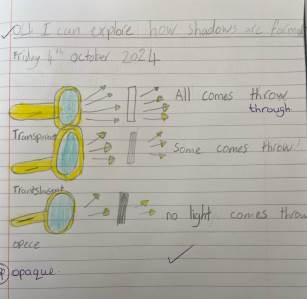 LO: I can explore how shadows are formed
Friday 4th October 2024
All comes throw
through
Transprint
Some comes throw!
Transtulsent
no light comes throw
opece
opaque.